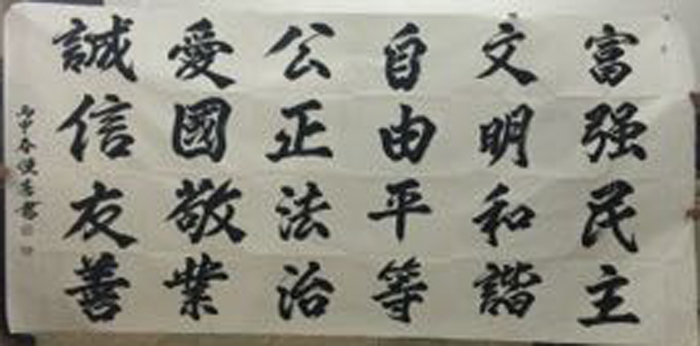 富强民主
文明和諧
自由平等
公正法治
愛國敬業
誠信友善
丙申春俊杰書